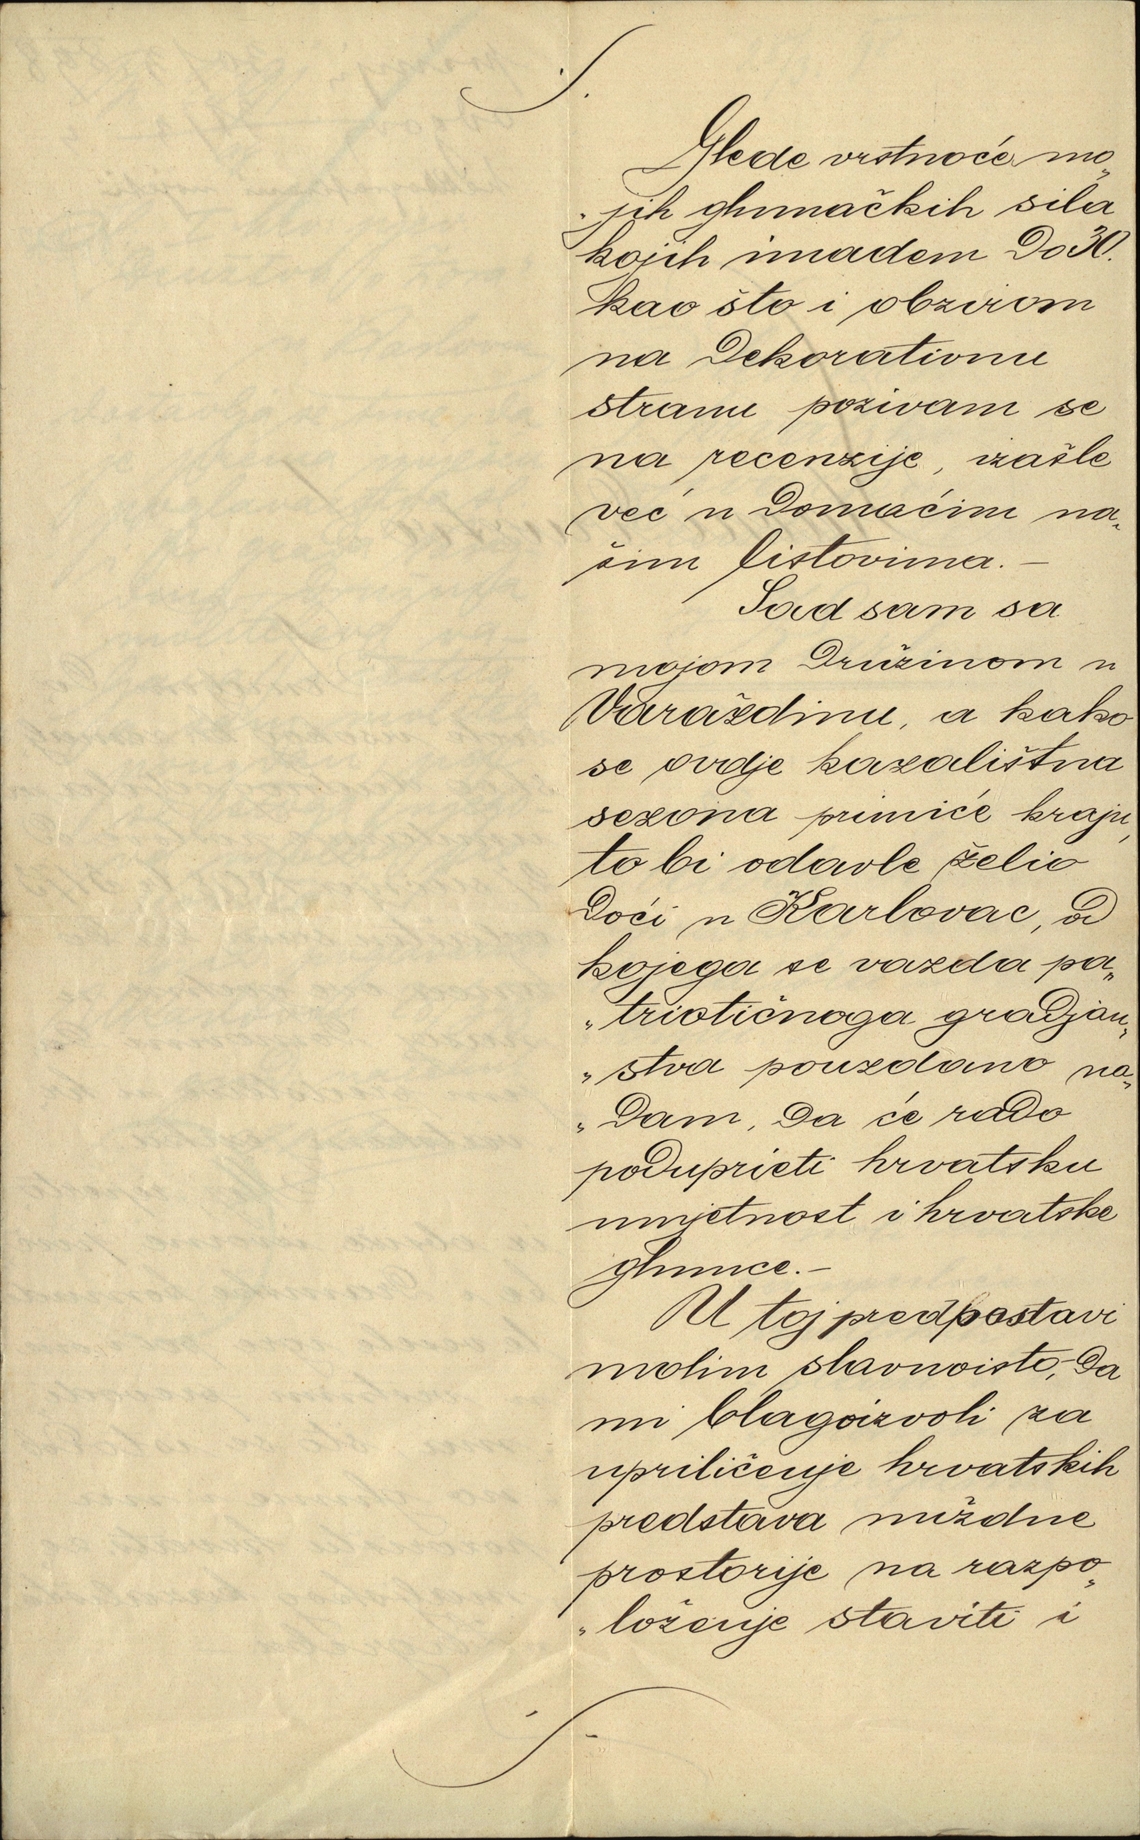 Glede vrstnoće mo„
„jih glumačkih sila
kojih imadem do 30.
kao što i obzirom
na dekorativnu
stranu pozivam se
na recenzije, izašle
već u domaćim na„
šim listovima. —
Sad sam sa
mojom družinom u
Varaždinu, a kako
se ovdje kazalištna
sezona primiče kraju,
to bi odavle želio
doći u Karlovac, od
kojega se vazda pa„
„triotičnoga gradjan„
„stva pouzdano na„
„dam, da će rado
poduprieti hrvatsku
umjetnost i hrvatske
glumce. —
U toj predpostavi
molim slavnoisto, da
mi blagoizvoli za
upriličenje hrvatskih
predstava nuždne
prostorije na razpo„
„loženje staviti i